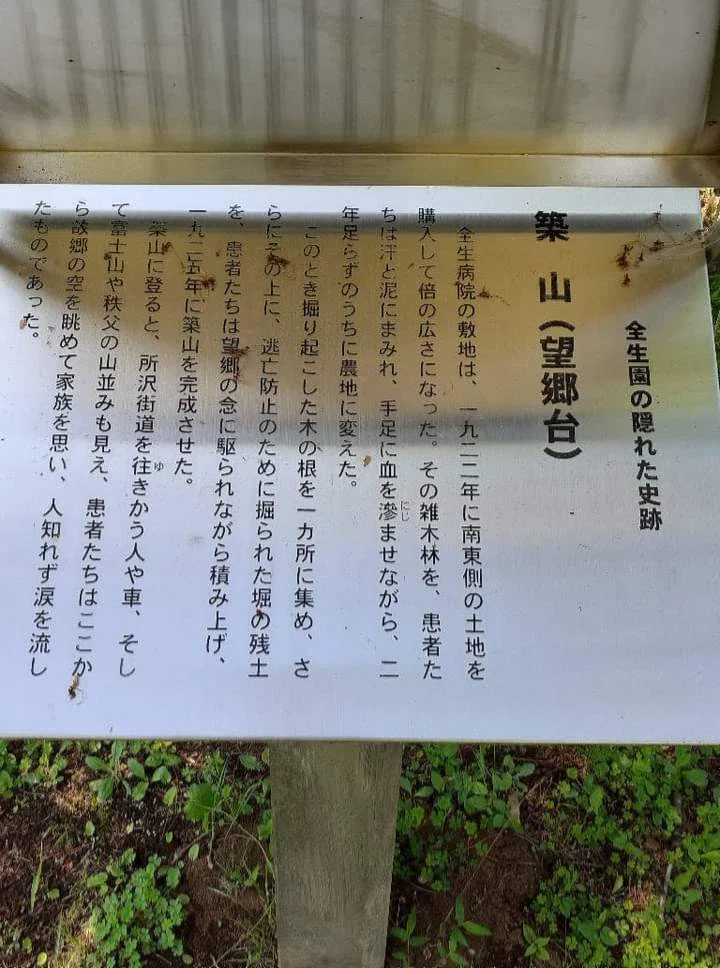 全生園の隠れた史跡
築山(望郷台)
全生病院の敷地は、一九二二年に南東側の土地を
購入して倍の広さになった。その雑木林を、患者た
ちは汗と泥にまみれ、手足に血を滲ませながら、二
にじ
年足らずのうちに農地に変えた。
このとき掘り起こした木の根を一カ所に集め、さ
らにその上に、逃亡防止のために掘られた堀の残土
を、患者たちは望郷の念に駆られながら積み上げ、
一九二五年に築山を完成させた。
築山に登ると、所沢街道を往きかう人や車、そし
ゆ
て富士山や秩父の山並みも見え、患者たちはここか
ら故郷の空を眺めて家族を思い、人知れず涙を流し
たものであった。